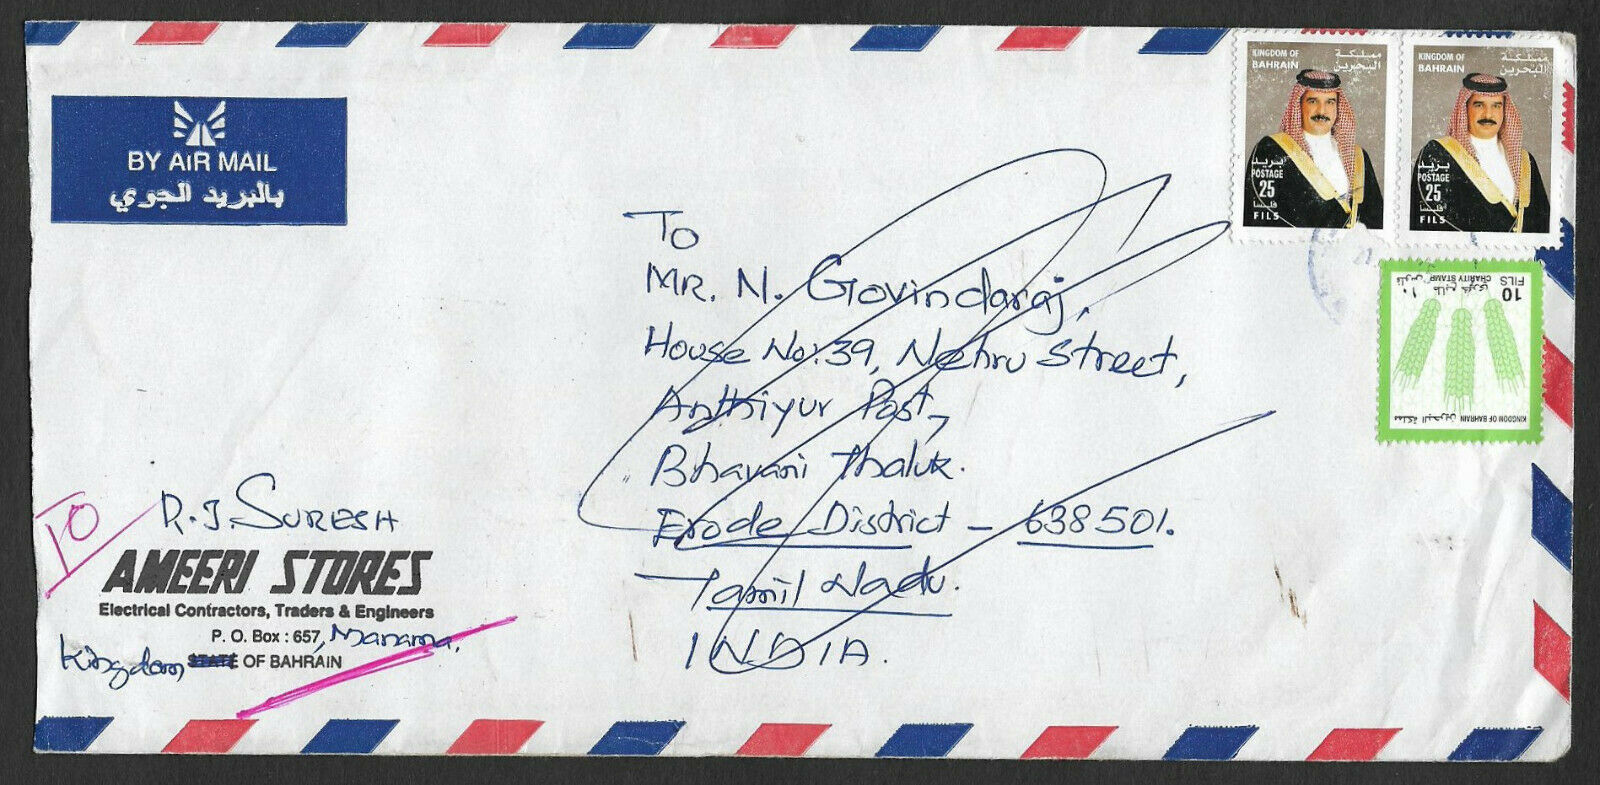 BY AIR MAIL
بالبريد الجوي
KINGDOM OF
BAHRAIN
مملكة
البحرين
بريد
POSTAGE
25
فلسا
FILS
KINGDOM OF
BAHRAIN
مملكة
البحرين
بريد
POSTAGE
25
فلسا
FILS
KINGDOM OF BAHRAIN مملكة البحرين
10
FILS
CHARITY STAMP
طابع خيري
١٠
فلوس
To
MR. N. Govindaraj,
House No: 39, Nehru Street,
Anthiyur Post,
Bhavani Thaluk.
Erode District - 638501.
Tamil Nadu.
INDIA.
TO
R.J. SURESH
AMEERI STORES
Electrical Contractors, Traders & Engineers
P. O. Box : 657, Manama.
Kingdom STATE OF BAHRAIN